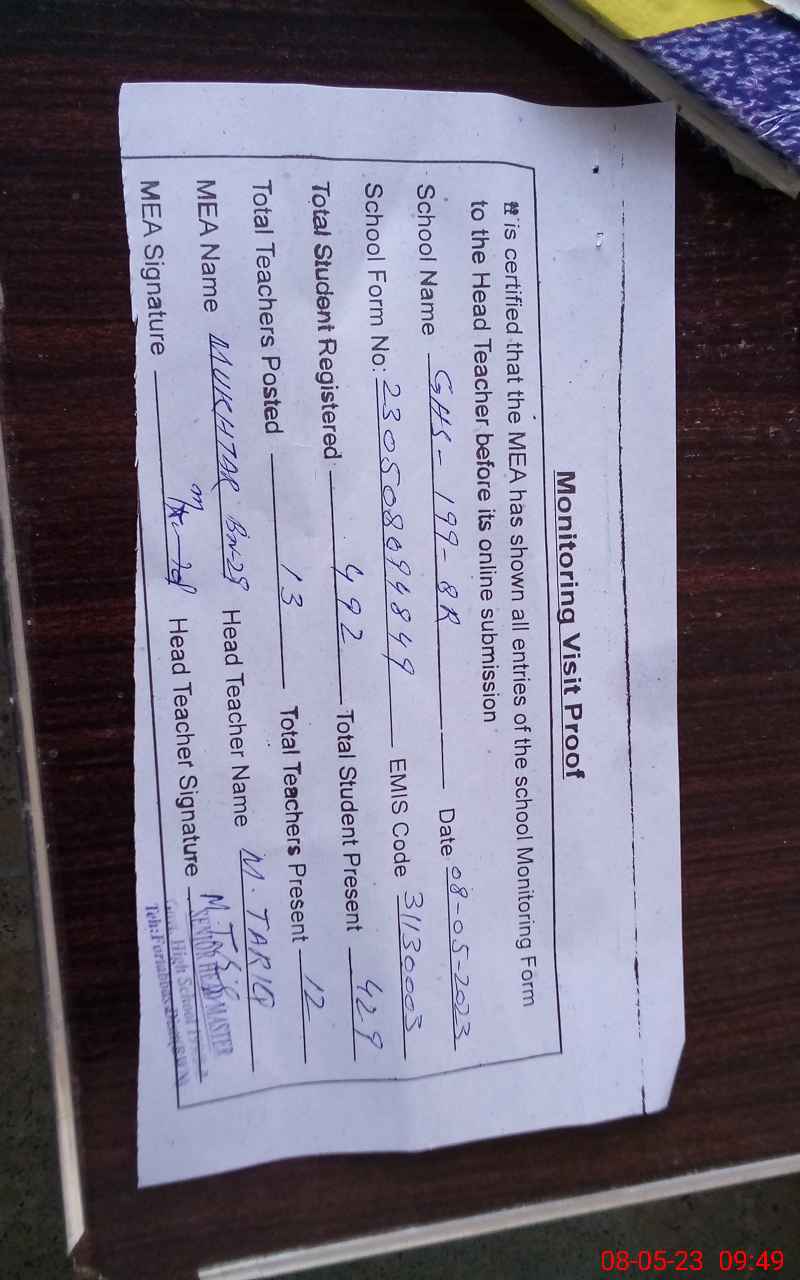 Monitoring Visit Proof
It is certified that the MEA has shown all entries of the school Monitoring Form
to the Head Teacher before its online submission
School Name GHS-199-8R Date 08-05-2023
School Form No: 23050809 4849 EMIS Code 31130003
Total Student Registered 492 Total Student Present 429
Total Teachers Posted 13 Total Teachers Present 12
MEA Name MUKHTAR Head Teacher Name M. TARIQ
MEA Signature Head Teacher Signature M. T
SENIOR HEAD MASTER
Govt. High School
Teh: Fortabbas
08-05-23 09:49